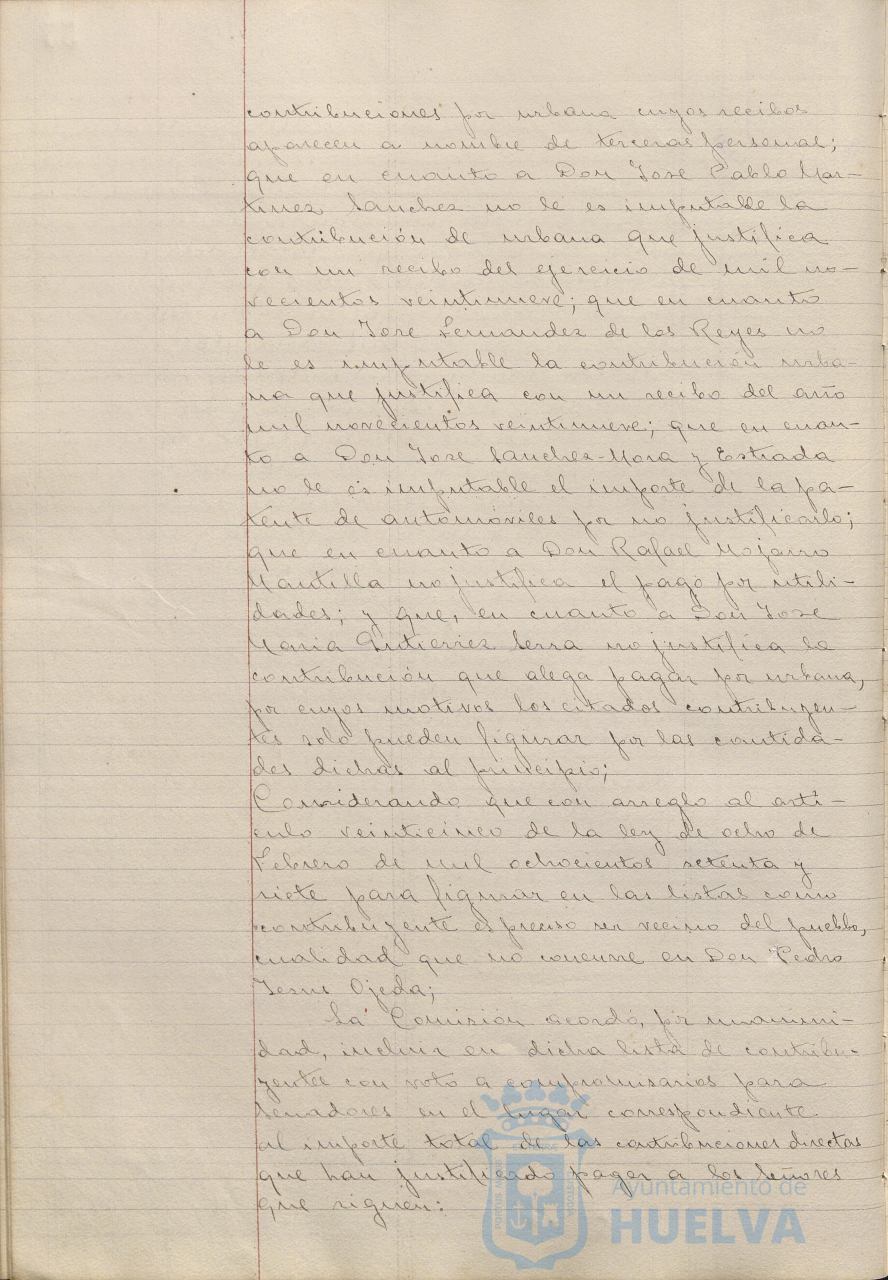 contribuciones por urbana cuyos recibos
aparecen a nombre de terceras personas;
que en cuanto a Don Jose Pablo Mar-
tinez Sanchez no le es imputable la
contribución de urbana que justifica
con un recibo del ejercicio de mil no-
vecientos veintinueve; que en cuanto
a Don Jose Fernandez de los Reyes no
le es imputable la contribución urba-
na que justifica con un recibo del año
mil novecientos veintinueve; que en cuan-
to a Don Jose Sanchez-Mora y Estrada
no le es imputable el importe de la pa-
tente de automóviles por no justificarlo;
que en cuanto a Don Rafael Mojarro
Mantilla no justifica el pago por utili-
dades; y que, en cuanto a Don Jose
Maria Gutierrez Serra no justifica la
contribución que alega pagar por urbana,
por cuyos motivos los citados contribuyen-
tes solo pueden figurar por las cantida-
des dichas al principio;
Considerando que con arreglo al arti-
culo veinticinco de la ley de ocho de
Febrero de mil ochocientos setenta y
siete para figurar en las listas como
contribuyente es preciso ser vecino del pueblo,
cualidad que no concurre en Don Pedro
Jesus Ojeda;
La Comisión acordó, por unanimi-
dad, incluir en dicha lista de contribu-
yentes con voto a compromisarios para
Senadores en el lugar correspondiente
al importe total de las contribuciones directas
que han justificado pagar a los Señores
que siguen:
Ayuntamiento de
HUELVA
PORTUS MARIS
CUSTODIA